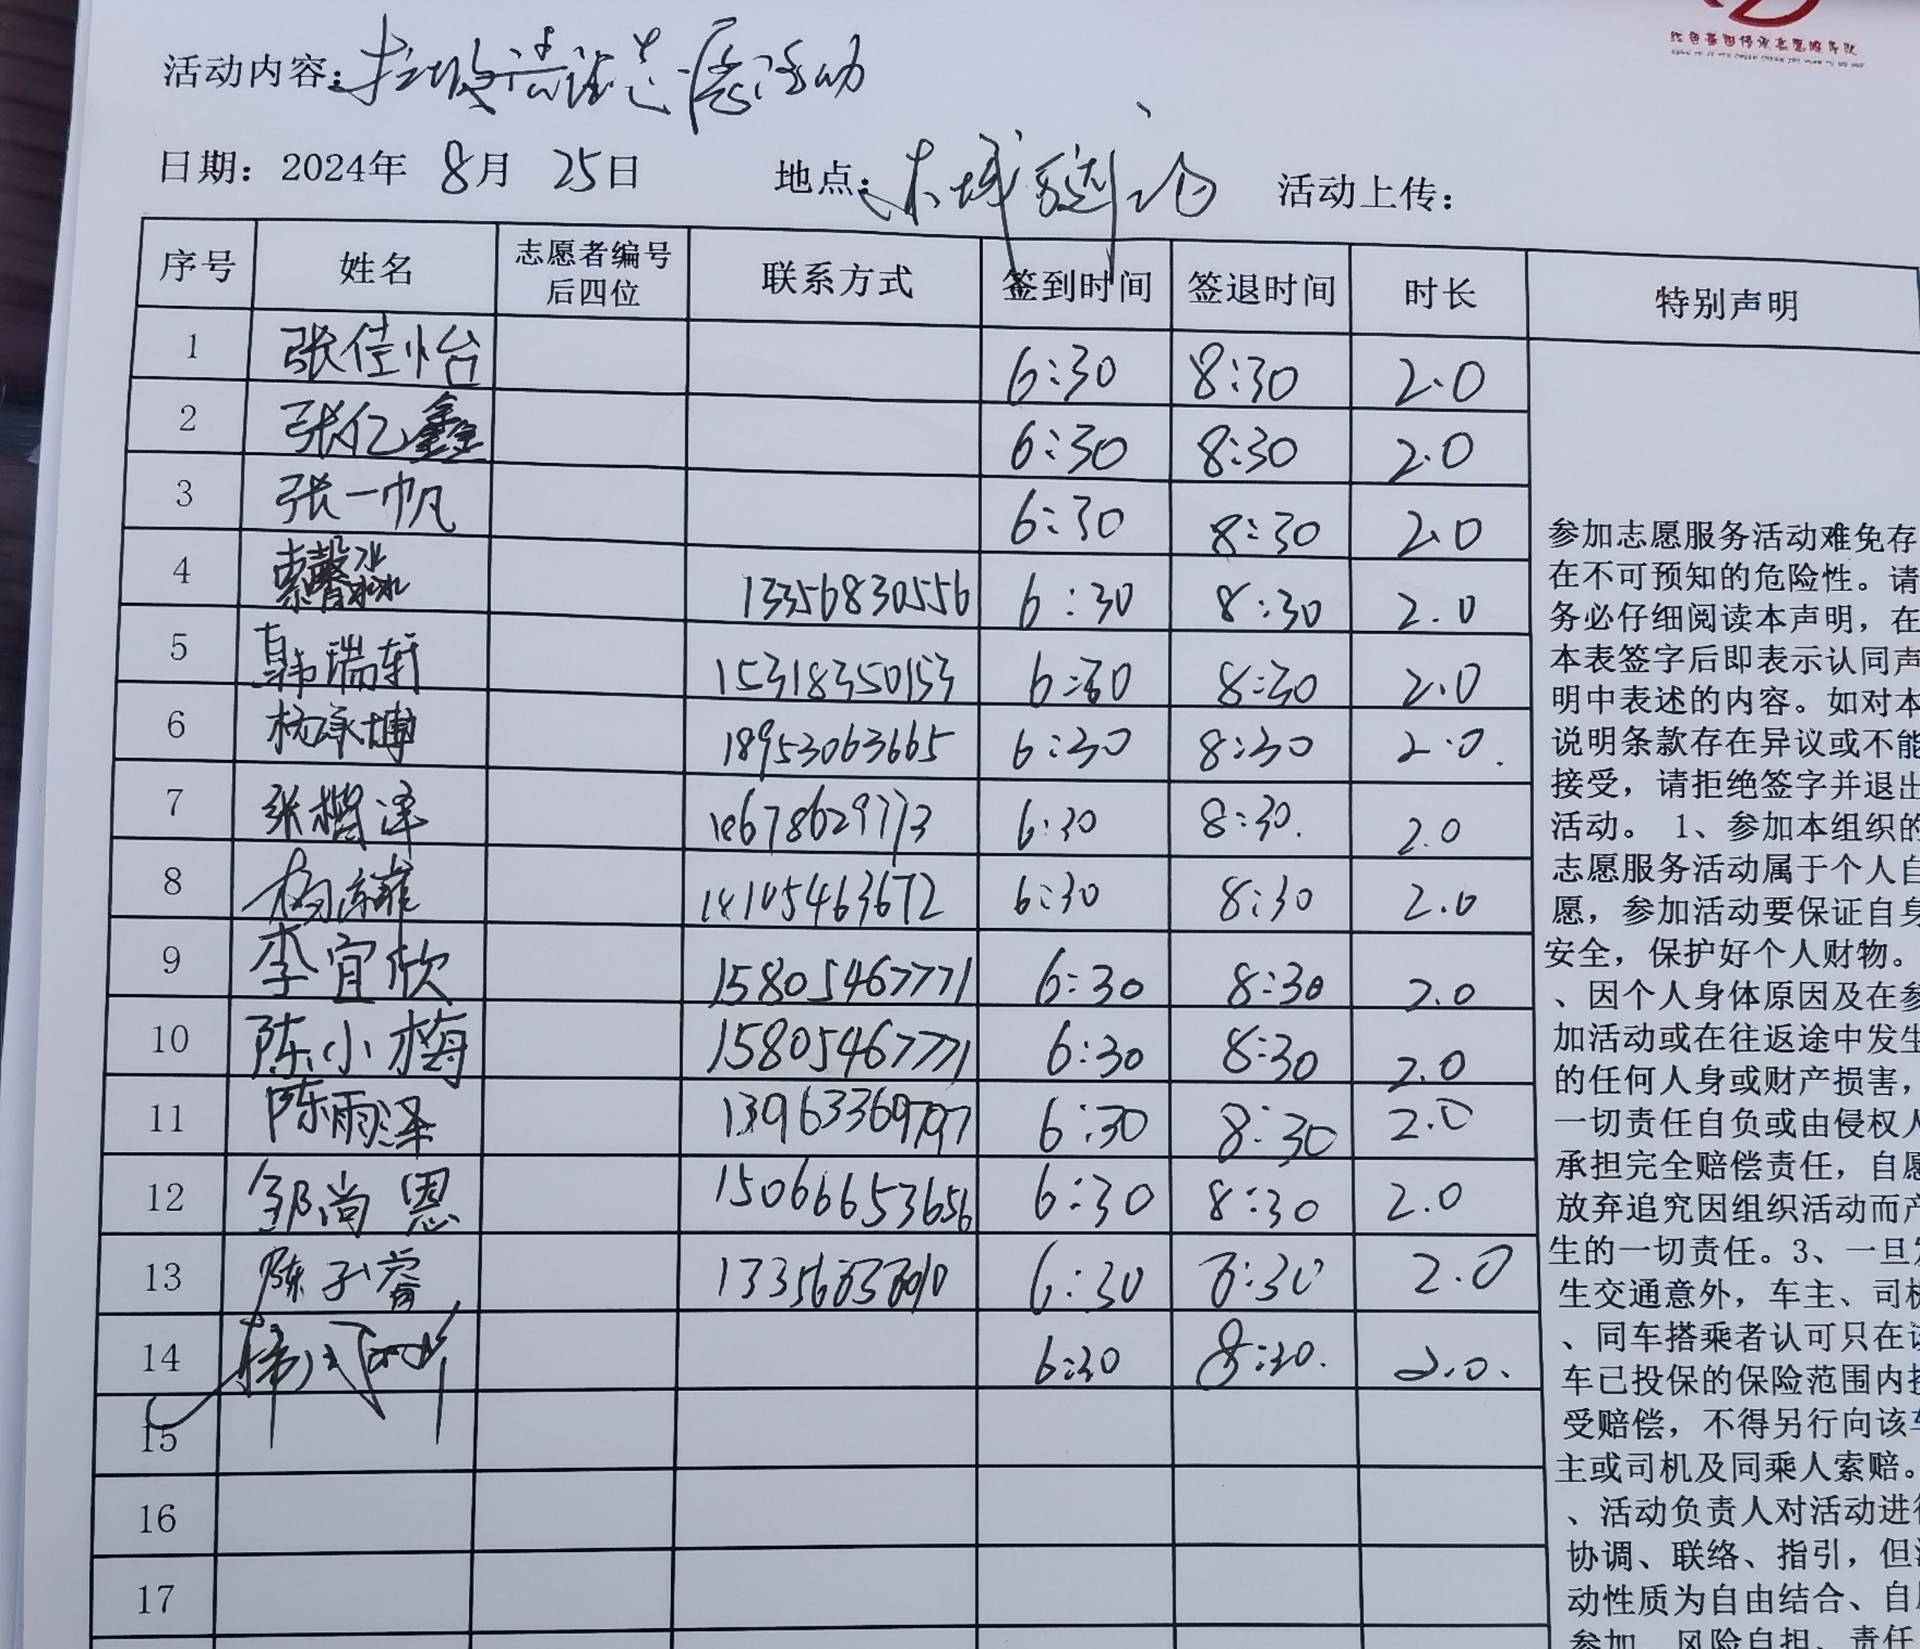 红色基因传承志愿服务队
活动内容：垃圾清理志愿活动
日期：2024年 8月 25日 地点： 活动上传：
序号 姓名 志愿者编号后四位 联系方式 签到时间 签退时间 时长 特别声明
1 张佳怡 6:30 8:30 2.0
2 张亿鑫 6:30 8:30 2.0
3 张一帆 6:30 8:30 2.0
4 13356830556 6:30 8:30 2.0
5 韩瑞轩 15318350153 6:30 8:30 2.0
6 杨承博 18953063665 6:30 8:30 2.0.
7 张楷泽 6:30 8:30. 2.0
8 6:30 8:30 2.0
9 李宜欣 15805467771 6:30 8:30 2.0
10 陈小梅 15805467771 6:30 8:30 2.0
11 陈雨泽 13963369797 6:30 8:30 2.0
12 邹尚恩 15066653656 6:30 8:30 2.0
13 陈子睿 6:30 8:30 2.0
14 6:30 8:30. 2.0.
15
16
17
参加志愿服务活动难免存
在不可预知的危险性。请
务必仔细阅读本声明，在
本表签字后即表示认同声
明中表述的内容。如对本
说明条款存在异议或不能
接受，请拒绝签字并退出
活动。 1、参加本组织的
志愿服务活动属于个人自
愿，参加活动要保证自身
安全，保护好个人财物。
、因个人身体原因及在参
加活动或在往返途中发生
的任何人身或财产损害，
一切责任自负或由侵权人
承担完全赔偿责任，自愿
放弃追究因组织活动而产
生的一切责任。3、一旦发
生交通意外，车主、司机
、同车搭乘者认可只在该
车已投保的保险范围内接
受赔偿，不得另行向该车
主或司机及同乘人索赔。
、活动负责人对活动进行
协调、联络、指引，但活
动性质为自由结合、自愿
参加、风险自担、责任